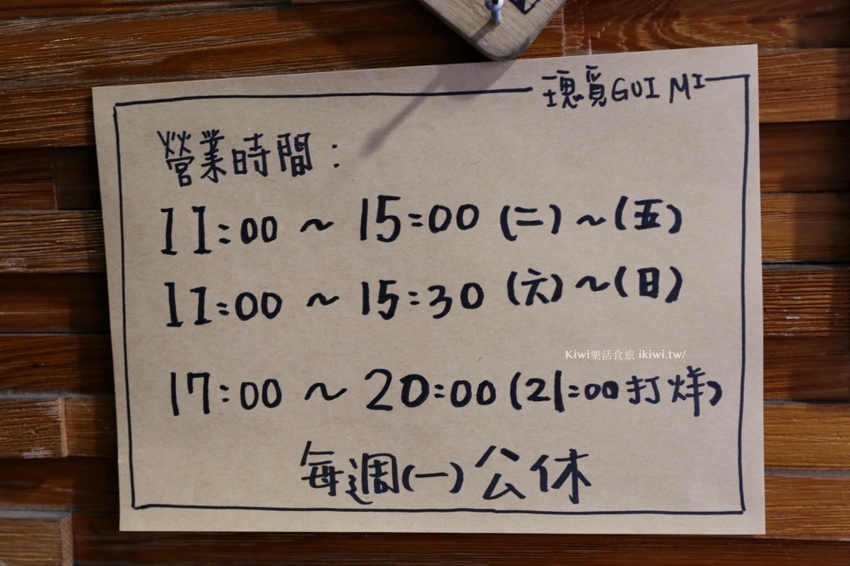 瓌覓GUI MI
營業時間：
11:00 ~ 15:00 (二) ~ (五)
11:00 ~ 15:30 (六) ~ (日)
Kiwi樂活食旅 ikiwi.tw/
17:00 ~ 20:00 (21:00打烊)
每週(一)公休